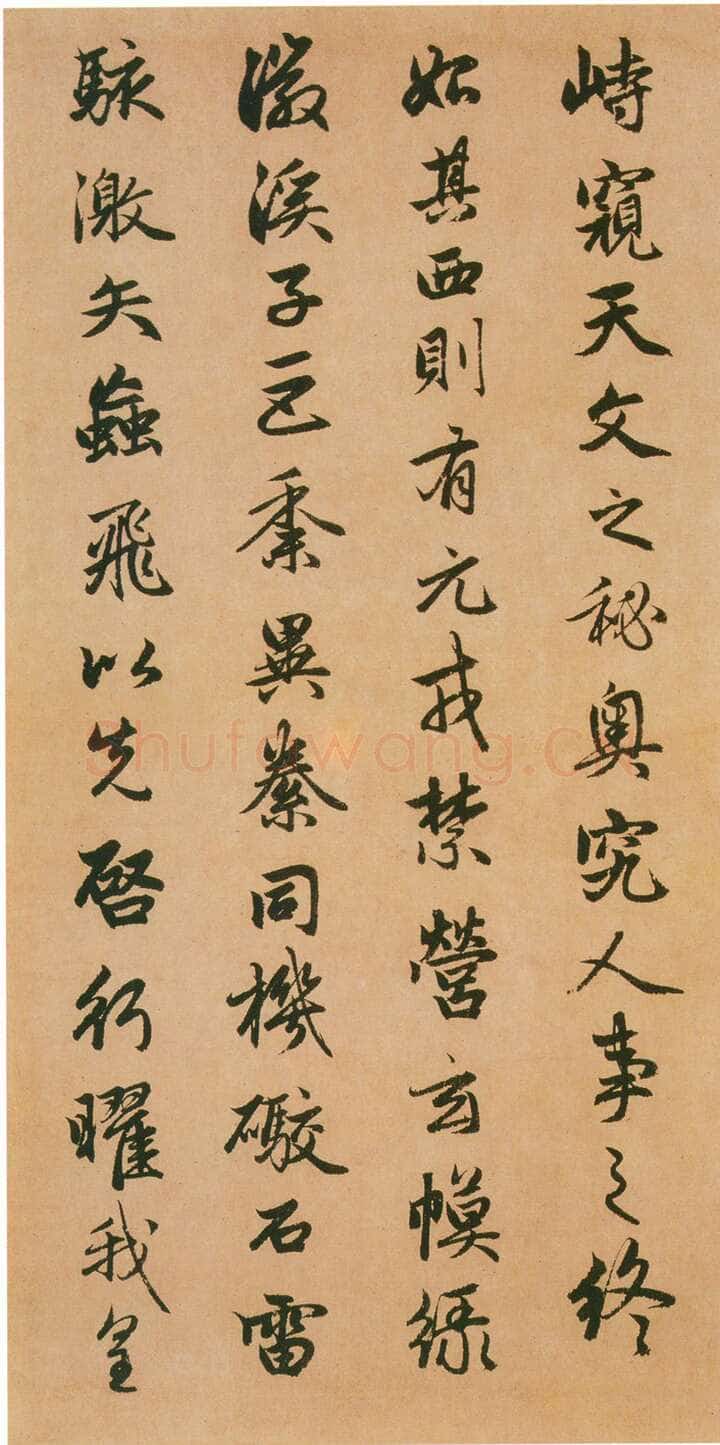 峙窺天文之秘奧究人事之終
始其西則有元戎禁營玄幙綠
徽溪子巨黍異絭同機礮石雷
駭激矢蝱飛以先啓行曜我皇
Shufawang.Cn